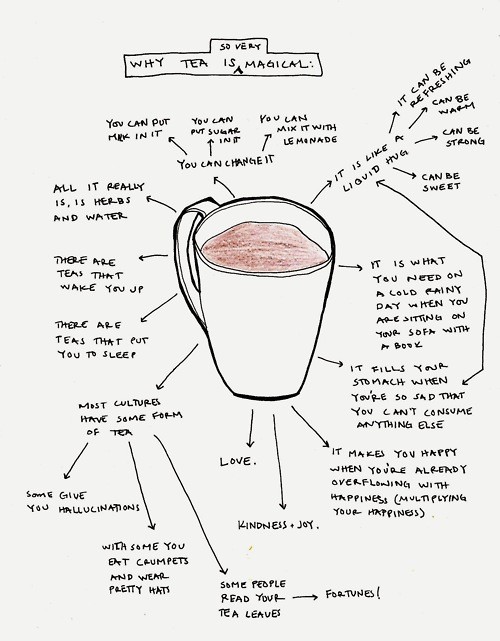 SO VERY
WHY TEA IS MAGICAL:
YOU CAN PUT
MILK IN IT
YOU CAN
PUT SUGAR
IN IT
YOU CAN
MIX IT WITH
LEMONADE
YOU CAN CHANGE IT
IT IS LIKE A
LIQUID HUG
IT CAN BE
REFRESHING
CAN BE
WARM
CAN BE
STRONG
CAN BE
SWEET
ALL IT REALLY
IS, IS HERBS
AND WATER
THERE ARE
TEAS THAT
WAKE YOU UP
THERE ARE
TEAS THAT PUT
YOU TO SLEEP
IT IS WHAT
YOU NEED ON
A COLD RAINY
DAY WHEN YOU
ARE SITTING ON
YOUR SOFA WITH
A BOOK
IT FILLS YOUR
STOMACH WHEN
YOU'RE SO SAD THAT
YOU CAN'T CONSUME
ANYTHING ELSE
MOST CULTURES
HAVE SOME FORM
OF TEA
LOVE.
KINDNESS + JOY.
IT MAKES YOU HAPPY
WHEN YOU'RE ALREADY
OVERFLOWING WITH
HAPPINESS (MULTIPLYING
YOUR HAPPINESS).
SOME GIVE
YOU HALLUCINATIONS
WITH SOME YOU
EAT CRUMPETS
AND WEAR
PRETTY HATS
SOME PEOPLE
READ YOUR
TEA LEAVES
FORTUNES!